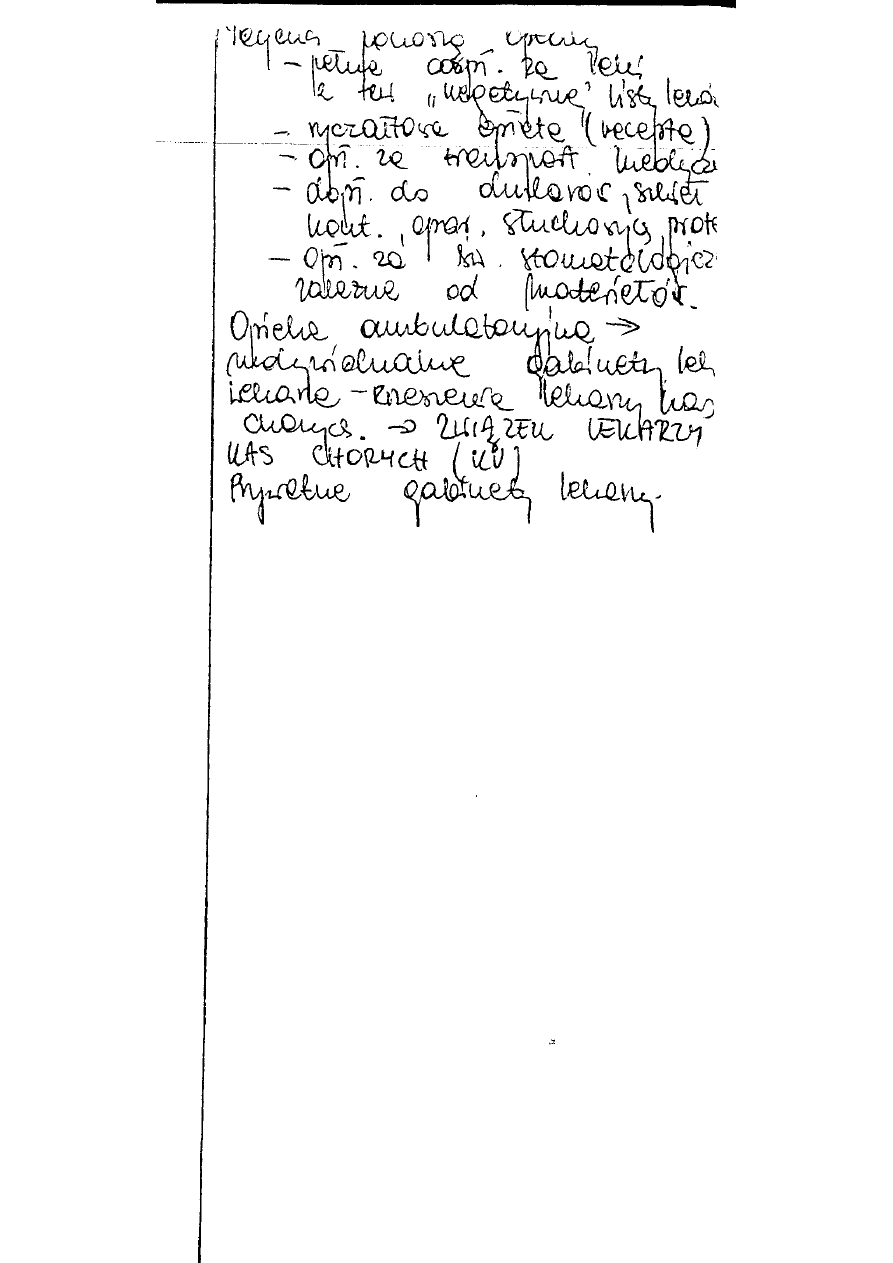 ponoszą
- pełną odpł. za leki
z tzw „negatywnej" listy lekó
- ryczałtowa opłata (recepta)
- opł. za transport medycz
- dopł. do okularów, szkieł
kont., apar. słuchowych, prote
- opł. za św. stomatologicz
zależne od materiałów.
Opieka ambulatoryjna →
indywidualne gabinety lek
lekarze - zrzeszenie lekarzy kas
chorych. → ZWIĄZEK LEKARZY
KAS CHORYCH (KV)
Prywatne gabinety lekarzy.